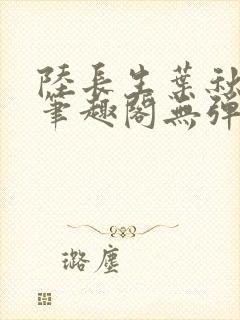 陸長生葉秋
筆趣閣無彈
璐塵